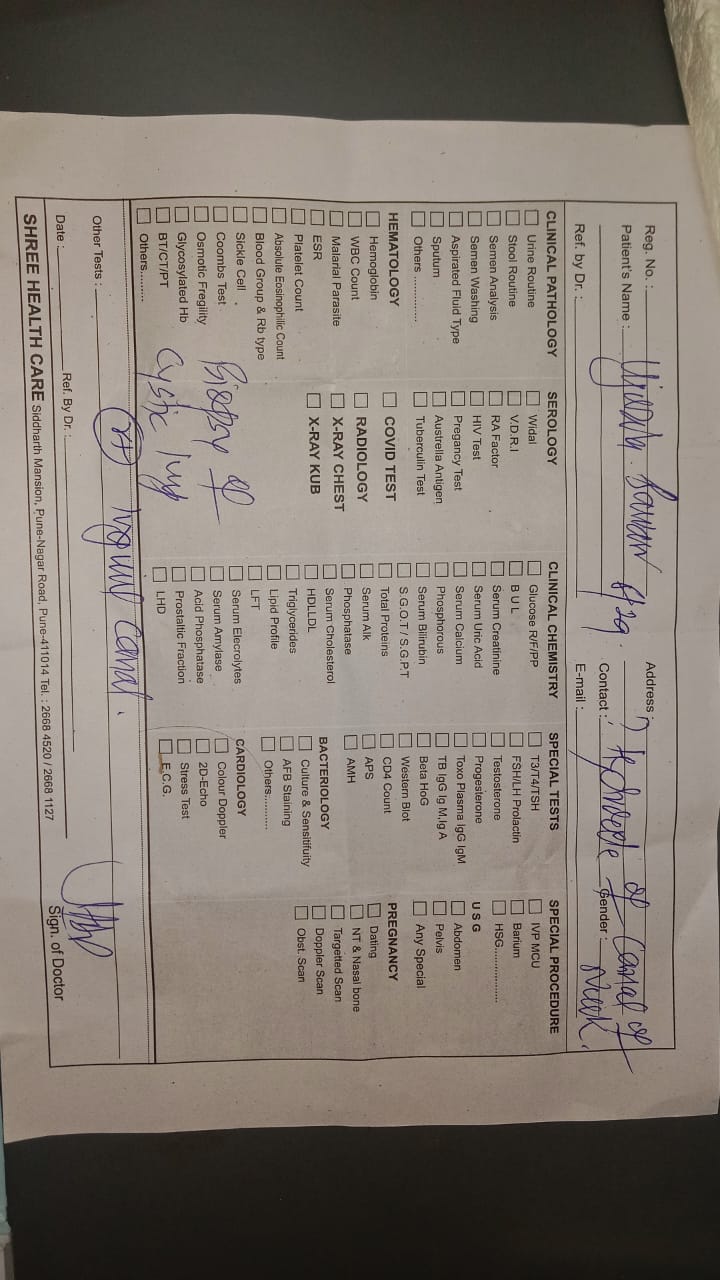 Reg. No. :
Patient's Name :
Ref. by Dr. :
Address : ? Hydrocele of Canal of
Contact : Gender :
E-mail :
CLINICAL PATHOLOGY
Urine Routine
Stool Routine
Semen Analysis
Semen Washing
Aspirated Fluid Type
Sputum
Others ..............
HEMATOLOGY
Hemoglobin
WBC Count
Malarial Parasite
ESR
Platelet Count
Absolute Eosinophilic Count
Blood Group & Rb type
Sickle Cell
Coombs Test
Osmotic Fregility
Glycosylated Hb
BT/CT/PT
Others.........
SEROLOGY
Widal
V.D.R.I
RA Factor
HIV Test
Pregancy Test
Austrella Antigen
Tuberculin Test
COVID TEST
RADIOLOGY
X-RAY CHEST
X-RAY KUB
CLINICAL CHEMISTRY
Glucose R/F/PP
B U L
Serum Creatinine
Serum Uric Acid
Serum Calcium
Phosphorous
Serum Bilirubin
S.G.O.T / S.G.P.T
Total Proteins
Serum Alk
Phosphatase
Serum Cholesterol
HDLLDL
Triglycerides
Lipid Profile
LFT
Serum Elecrolytes
Serum Amylase
Acid Phosphatase
Prostaltic Fraction
LHD
SPECIAL TESTS
T3/T4/TSH
FSH/LH Prolactin
Testosterone
Progesterone
Toxo Plasma IgG IgM
TB IgG Ig M.Ig A
Beta HoG
Western Blot
CD4 Count
APS
AMH
BACTERIOLOGY
Culture & Sensitifuity
AFB Staining
Others..........
CARDIOLOGY
Colour Doppler
2D-Echo
Stress Test
E.C.G.
SPECIAL PROCEDURE
IVP MCU
Barium
HSG..................
U S G
Abdomen
Pelvis
Any Special
PREGNANCY
Dating
NT & Nasal bone
Targetted Scan
Doppler Scan
Obst. Scan
Biopsy of
Cystic
Other Tests : Rt Inguinal Canal.
Date : Ref. By Dr. :
Sign. of Doctor
SHREE HEALTH CARE Siddharth Mansion, Pune-Nagar Road, Pune-411014 Tel. : 2668 4520 / 2668 1127